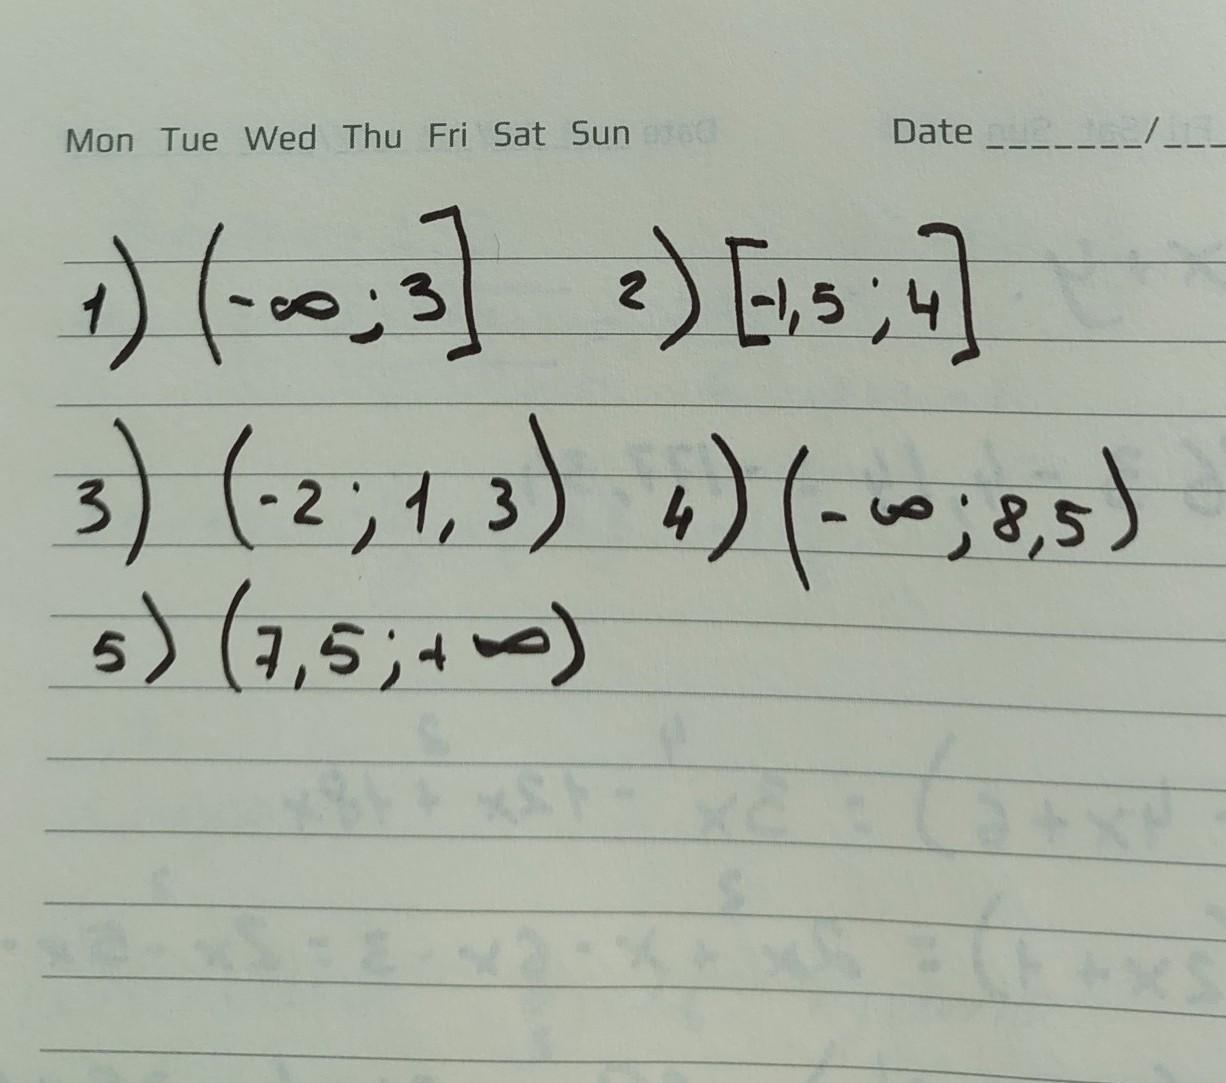 Mon Tue Wed Thu Fri Sat Sun Date _______/___
1) (-∞; 3] 2) [-1,5; 4]
3) (-2; 1,3) 4) (-∞; 8,5)
5) (7,5; +∞)